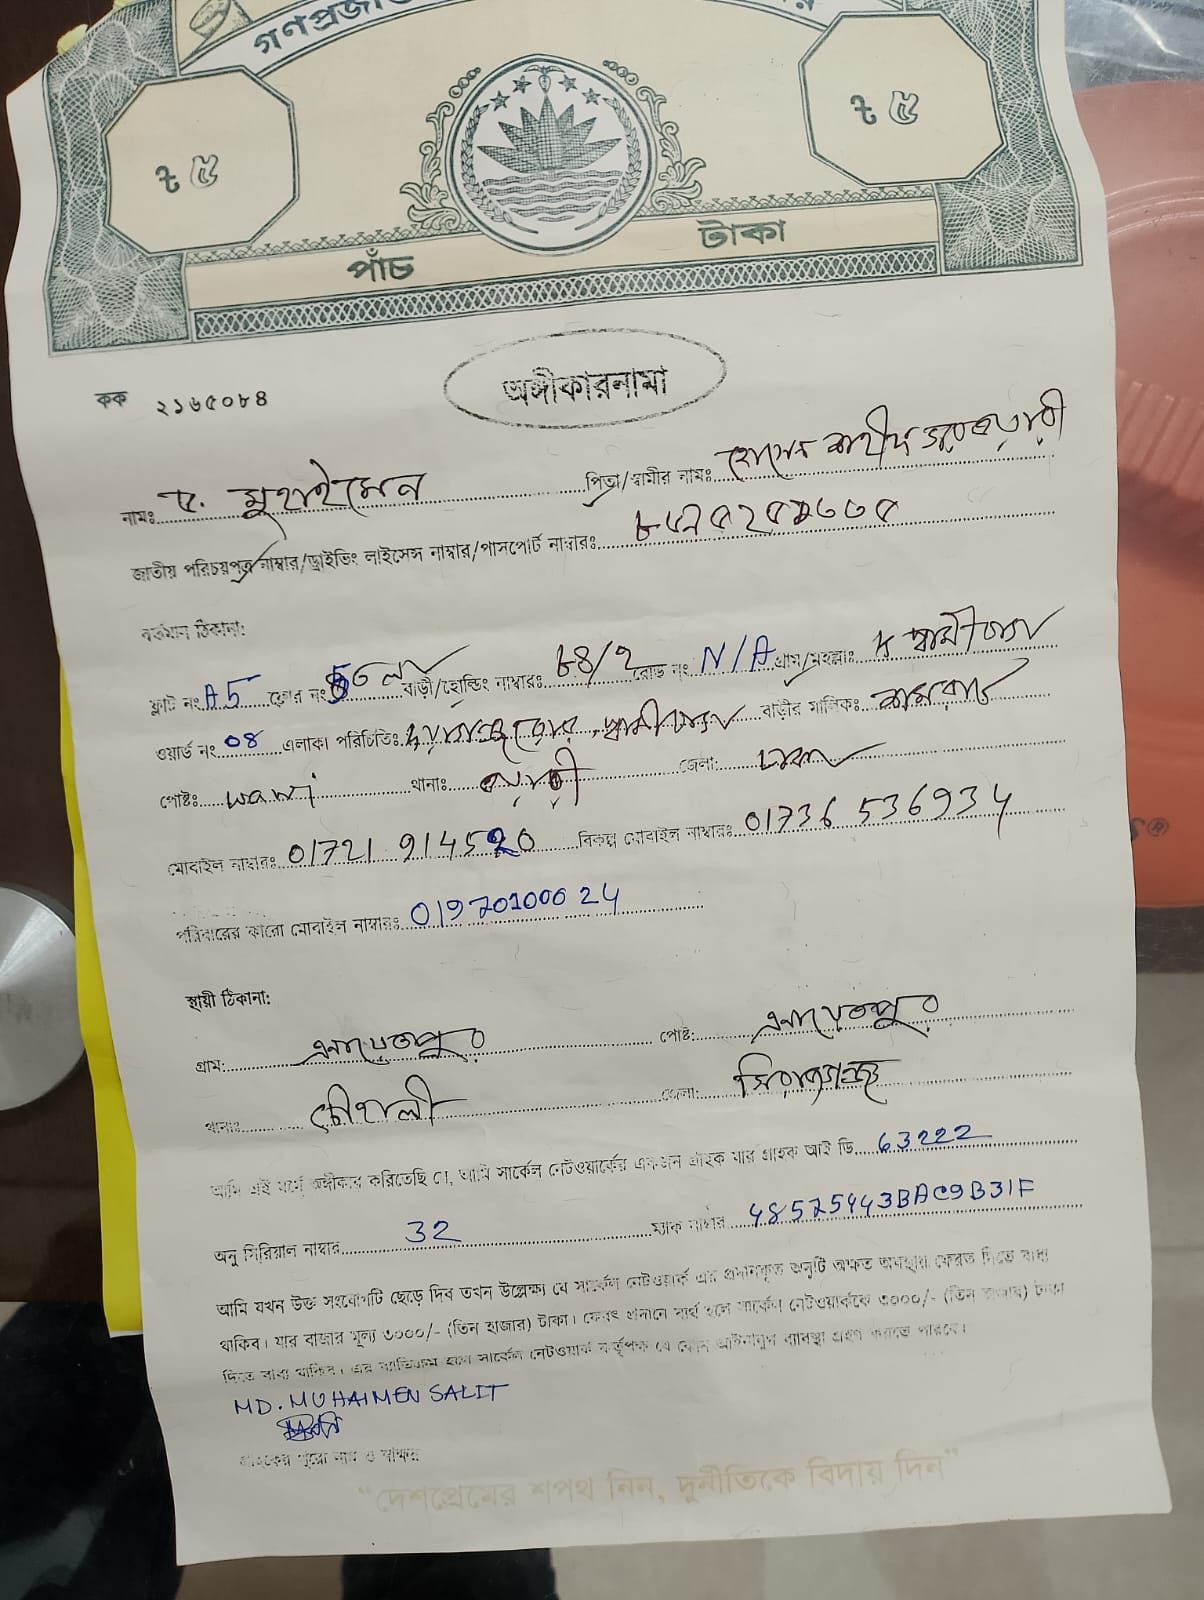 গণপ্রজা
৳ ৫
৳ ৫
পাঁচ টাকা
কক ২১৬৫০৮৪
অঙ্গীকারনামা
নামঃ মুহাইমেন পিতা/স্বামীর নামঃ
জাতীয় পরিচয়পত্র নাম্বার/ড্রাইভিং লাইসেন্স নাম্বার/পাসপোর্ট নাম্বারঃ
বর্তমান ঠিকানা:
ফ্লাট নং A5 ফ্লোর নং বাড়ী/হোল্ডিং নাম্বারঃ ৮৪/২ রোড নং N/A গ্রাম/মহল্লাঃ
ওয়ার্ড নং 08 এলাকা পরিচিতিঃ বাড়ীর মালিকঃ
পোষ্টঃ wari থানাঃ ওয়ারী জেলা: ঢাকা
মোবাইল নাম্বারঃ বিকল্প মোবাইল নাম্বারঃ 01736 536934
পরিবারের কারো মোবাইল নাম্বারঃ 01970100024
স্থায়ী ঠিকানা:
গ্রাম: এনায়েতপুর পোষ্ট: এনায়েতপুর
থানাঃ চৌহালী জেলা: সিরাজগঞ্জ
আমি এই মর্মে অঙ্গীকার করিতেছি যে, আমি সার্কেল নেটওয়ার্কের একজন গ্রাহক যার গ্রাহক আই ডি 63222
অনু সিরিয়াল নাম্বার 32 ম্যাক নাম্বার 48575443BAC9B31F
আমি যখন উক্ত সংযোগটি ছেড়ে দিব তখন উল্লেক্ষা যে সার্কেল নেটওয়ার্ক এর প্রদানকৃত অনুটি অক্ষত অবস্থায় ফেরত দিতে বাধ্য
থাকিব। যার বাজার মূল্য ৩০০০/- (তিন হাজার) টাকা। ফেরৎ প্রদানে ব্যর্থ হলে সার্কেল নেটওয়ার্ককে ৩০০০/- (তিন হাজার) টাকা
দিতে বাধ্য থাকিব। এর ব্যতিক্রম হলে সার্কেল নেটওয়ার্ক কর্তৃপক্ষ যে কোন আইনানুগ ব্যবস্থা গ্রহণ করতে পারবে।
MD. MUHAIMEN SALIT
গ্রাহকের পুরো নাম ও স্বাক্ষর
“দেশপ্রেমের শপথ নিন, দুর্নীতিকে বিদায় দিন”